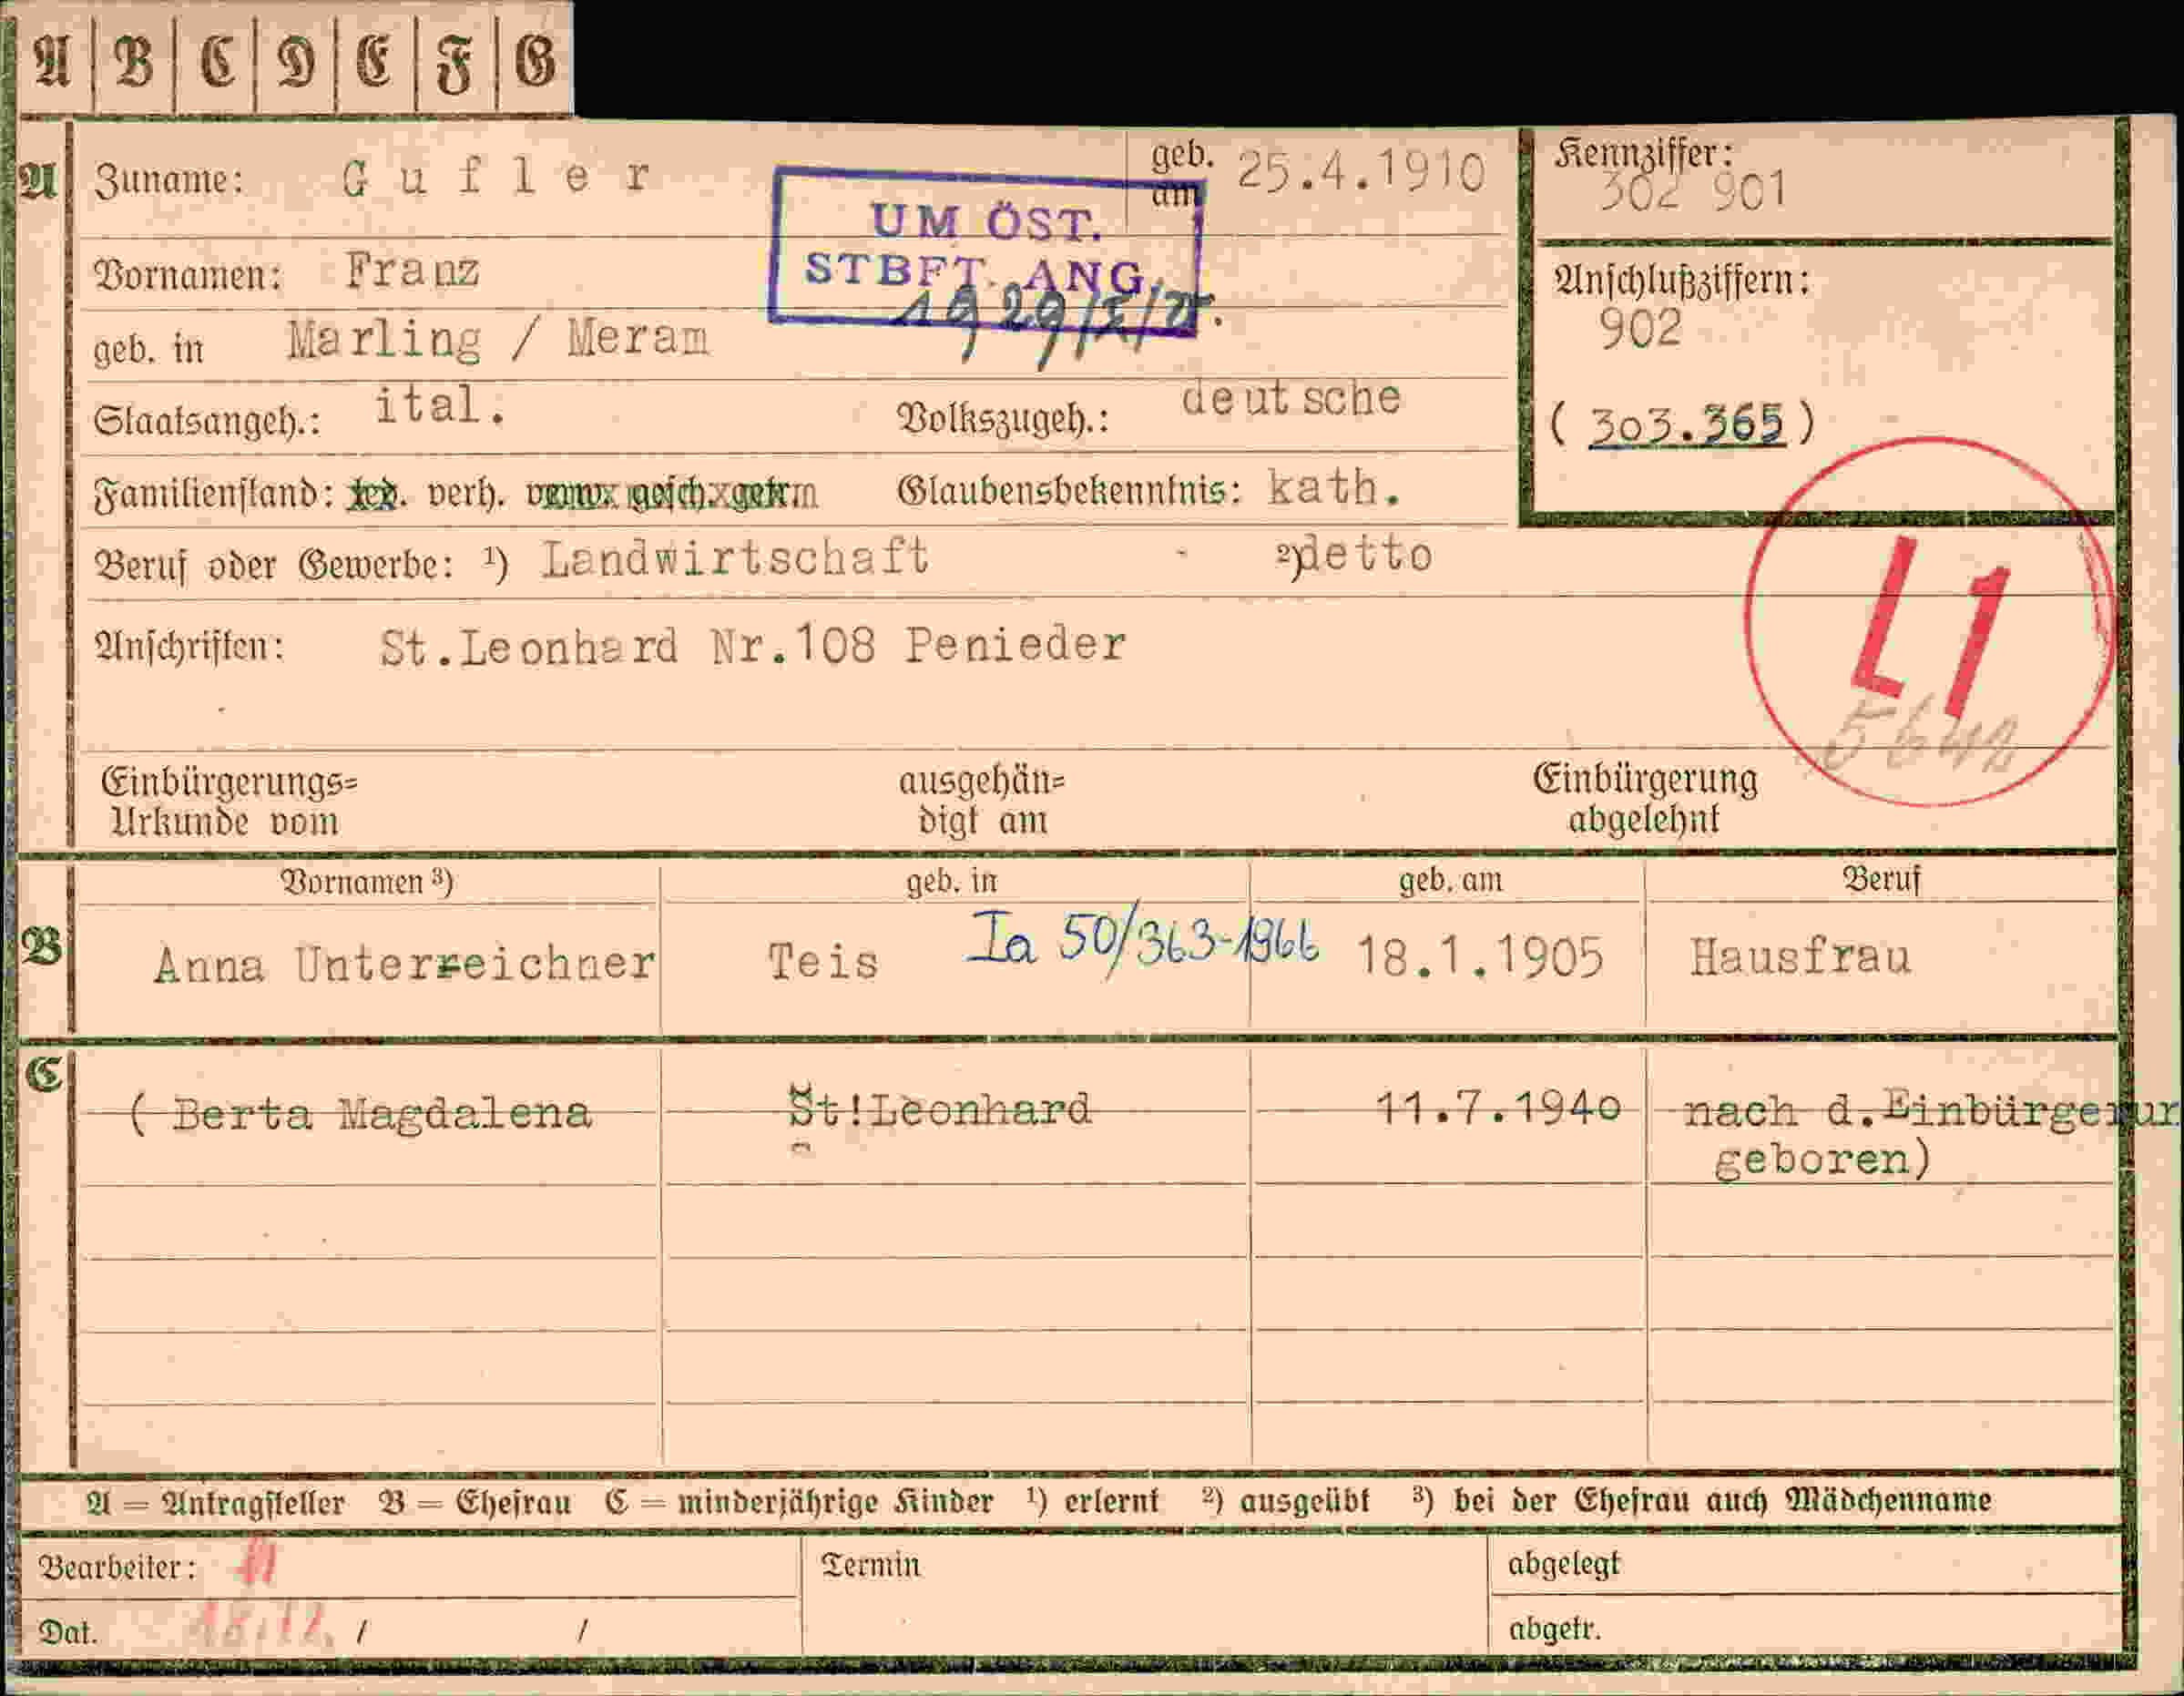 A B C D E F G
A Zuname: Gufler geb. am 25.4.1910
Kennziffer: 302 901
UM ÖST. STBFT. ANG.
Vornamen: Franz
Anschlußziffern: 902
geb. in Marling / Meram
Staatsangeh.: ital. Volkszugeh.: deutsche
(303.365)
Familienstand: verh. Glaubensbekenntnis: kath.
Beruf oder Gewerbe: ¹) Landwirtschaft ²) detto
L1
Anschriften: St.Leonhard Nr.108 Penieder
5642
Einbürgerungs=
Urkunde vom
ausgehän=
digt am
Einbürgerung
abgelehnt
Vornamen ³) geb. in geb. am Beruf
B Anna Unterreichner Teis Ia 50/363-1966 18.1.1905 Hausfrau
C (Berta Magdalena St!Leonhard 11.7.1940 nach d.Einbürgerur
geboren)
A = Antragsteller B = Ehefrau C = minderjährige Kinder ¹) erlernt ²) ausgeübt ³) bei der Ehefrau auch Mädchenname
Bearbeiter: Termin abgelegt
Dat. 18.12. / / abgetr.